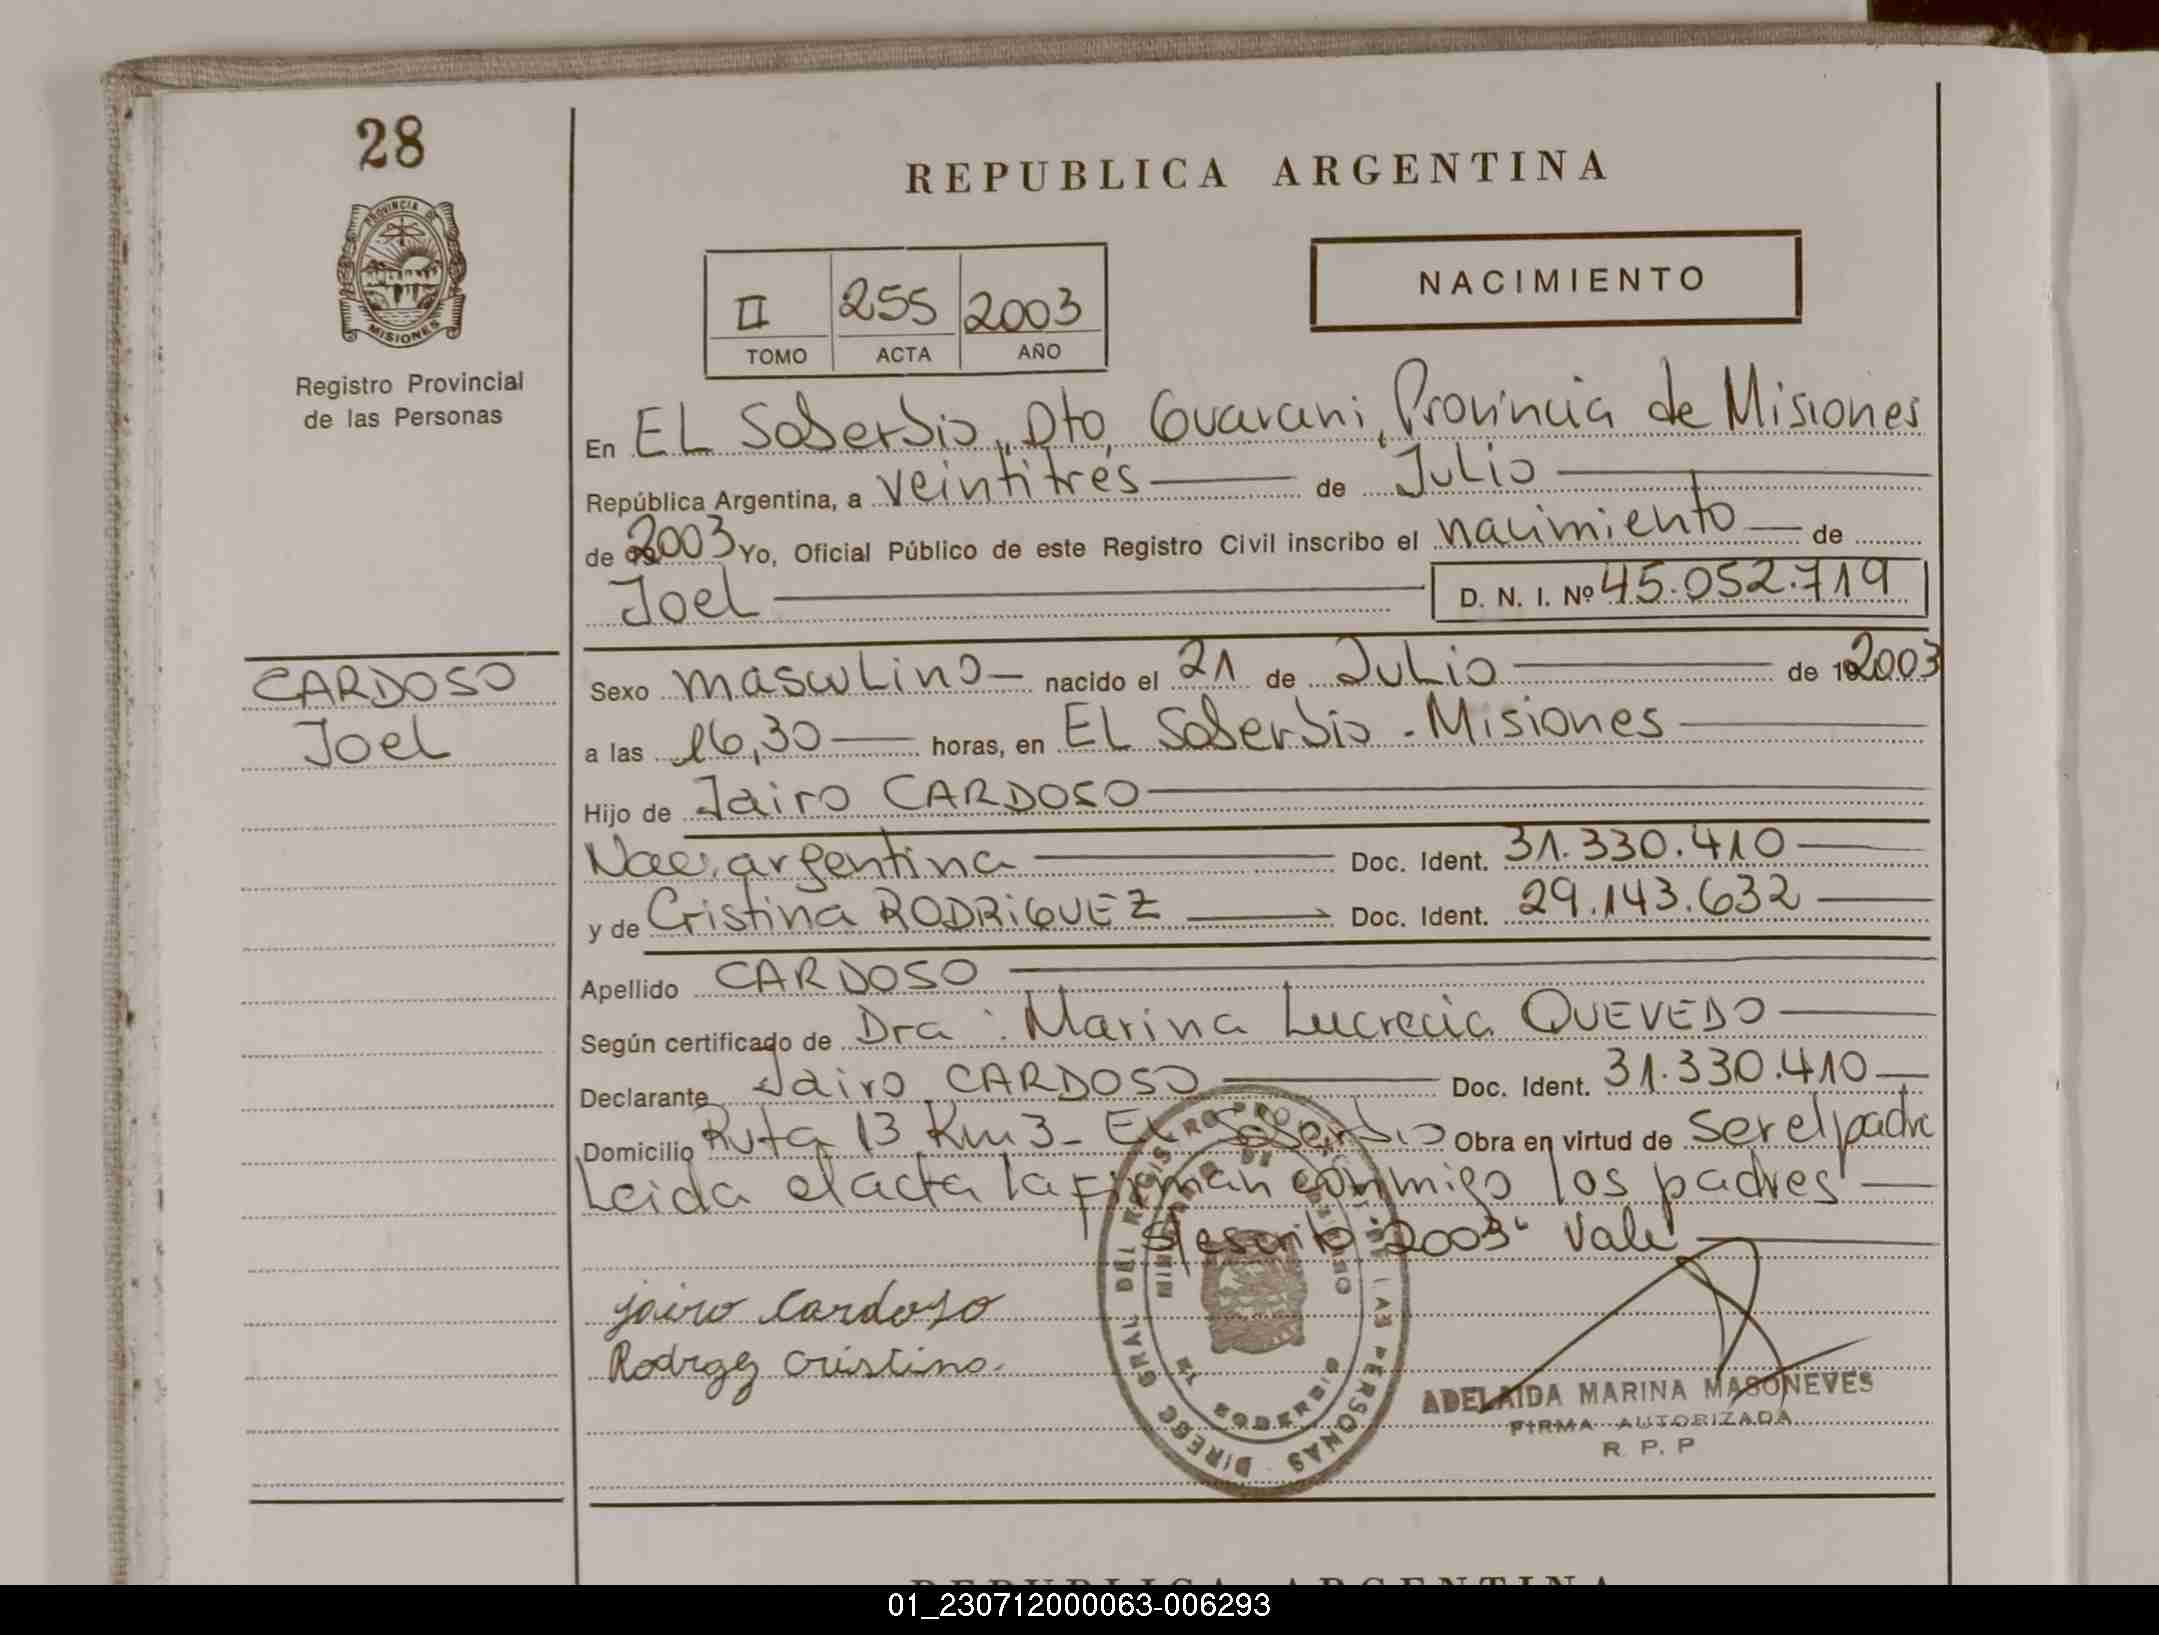 28
PROVINCIA DE
MISIONES
Registro Provincial
de las Personas
REPUBLICA ARGENTINA
II 255 2003
TOMO ACTA AÑO
NACIMIENTO
En EL Soberbio, Dto, Guarani, Provincia de Misiones
República Argentina, a veintitrés de Julio
de 2003 Yo, Oficial Público de este Registro Civil inscribo el nacimiento de
Joel D. N. I. Nº 45.052.719
CARDOSO
Joel
Sexo masculino nacido el 21 de Julio de 2003
a las 16,30 horas, en EL Soberbio - Misiones
Hijo de Jairo CARDOSO
Nac. argentina Doc. Ident. 31.330.410
y de Cristina RODRiGUEZ Doc. Ident. 29.143.632
Apellido CARDOSO
Según certificado de Dra: Marina Lucrecia QUEVEDO
Declarante Jairo CARDOSO Doc. Ident. 31.330.410
Domicilio Ruta 13 Km 3 - EL Soberbio Obra en virtud de ser el padre
Leida el acta la firman conmigo los padres
"2003" Vale
jairo Cardoso
Rodrgez cristina.
DIRECC GRAL DEL REGIS RO PERSONAS
GOBIERNO
ADELAIDA MARINA MASONEVES
FIRMA AUTORIZADA
R. P. P
REPUBLICA ARGENTINA
01_230712000063-006293